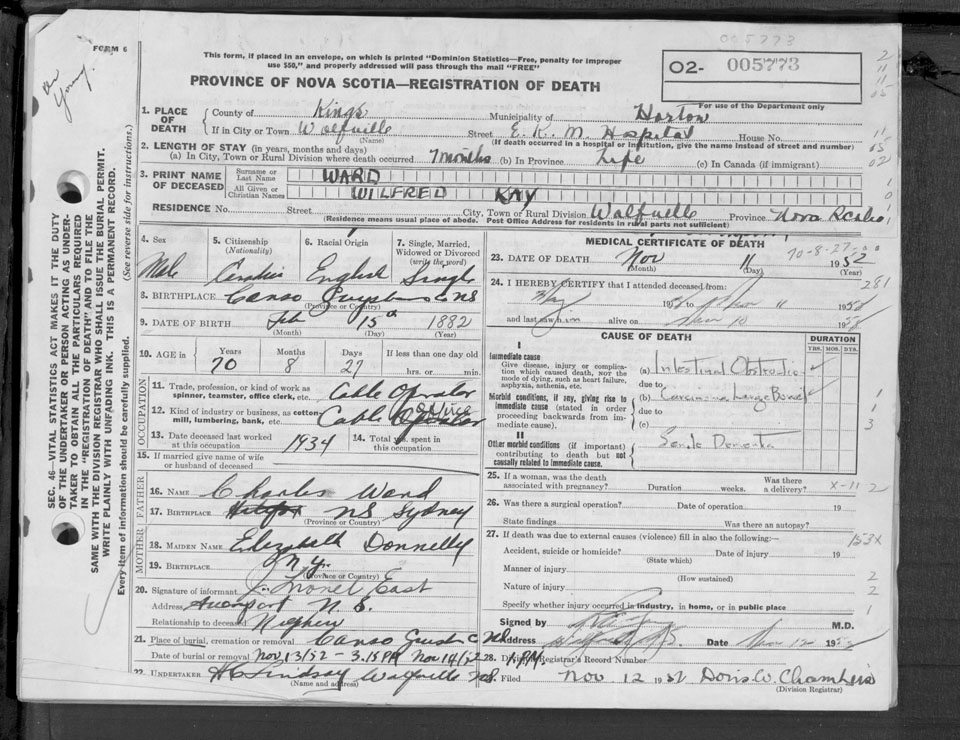 005773
FORM 6
This form, if placed in an envelope, on which is printed "Dominion Statistics—Free, penalty for improper
use $50," and properly addressed will pass through the mail "FREE"
PROVINCE OF NOVA SCOTIA—REGISTRATION OF DEATH
O2- 005773
For use of the Department only
SEC. 46—VITAL STATISTICS ACT MAKES IT THE DUTY
OF THE UNDERTAKER OR PERSON ACTING AS UNDER-
TAKER TO OBTAIN ALL THE PARTICULARS REQUIRED
IN THE "REGISTRATION OF DEATH" AND TO FILE THE
SAME WITH THE DIVISION REGISTRAR WHO SHALL ISSUE THE BURIAL PERMIT.
WRITE PLAINLY WITH UNFADING INK. THIS IS A PERMANENT RECORD.
Every item of information should be carefully supplied. (See reverse side for instructions.)
1. PLACE OF DEATH County of Kings Municipality of Horton
If in City or Town Wolfville Street E. K. M. Hospital House No.
(Name) (If death occurred in a hospital or institution, give the name instead of street and number)
2. LENGTH OF STAY (in years, months and days)
(a) In City, Town or Rural Division where death occurred 7 months (b) In Province Life (c) In Canada (if immigrant)
3. PRINT NAME OF DECEASED Surname or Last Name WARD
All Given or Christian Names WILFRED KAY
RESIDENCE No. Street City, Town or Rural Division Wolfville Province Nova Scotia
(Residence means usual place of abode. Post Office Address for residents in rural parts not sufficient)
4. Sex 5. Citizenship (Nationality) 6. Racial Origin 7. Single, Married, Widowed or Divorced (write the word)
Male English Single
8. BIRTHPLACE Canso Guysboro NS
(Province or Country)
9. DATE OF BIRTH Feb 15 1882
(Month) (Day) (Year)
10. AGE in Years Months Days If less than one day old
70 8 27 hrs. or min.
OCCUPATION
11. Trade, profession, or kind of work as spinner, teamster, office clerk, etc. Cable Operator
12. Kind of industry or business, as cotton-mill, lumbering, bank, etc. Cable Office
13. Date deceased last worked at this occupation 1934 14. Total yrs. spent in this occupation
15. If married give name of wife or husband of deceased
FATHER
16. NAME Charles Ward
17. BIRTHPLACE NS Sydney
(Province or Country)
MOTHER
18. MAIDEN NAME Elizabeth Donnelly
19. BIRTHPLACE N.Y.
(Province or Country)
20. Signature of informant J. Lionel East
Address Avonport N. S.
Relationship to deceased Nephew
21. Place of burial, cremation or removal Canso
Date of burial or removal Nov 13/52 - 3.15 PM Nov 14/52 1 PM
22. UNDERTAKER H C Lindsay Wolfville NS.
(Name and address)
MEDICAL CERTIFICATE OF DEATH
70-8-27
23. DATE OF DEATH Nov 11 1952
(Month) (Day) (Year)
24. I HEREBY CERTIFY that I attended deceased from: 281
and last saw him alive on Nov 10
CAUSE OF DEATH
DURATION
YRS. MOS. DYS.
I
Immediate cause
Give disease, injury or complication which caused death, NOT the mode of dying, such as heart failure, asphyxia, asthenia, etc. (a) Intestinal Obstruction
due to
Morbid conditions, if any, giving rise to immediate cause (stated in order proceeding backwards from immediate cause). (b) Carcinoma Large Bowel
due to
(c)
II
Other morbid conditions (if important) contributing to death but not causally related to immediate cause. Senile Dementia
25. If a woman, was the death associated with pregnancy? Duration weeks. Was there a delivery? X-11 2
26. Was there a surgical operation? Date of operation 19
State findings Was there an autopsy?
27. If death was due to external causes (violence) fill in also the following:— 153X
Accident, suicide or homicide? Date of injury 19
(State which)
Manner of injury
(How sustained)
Nature of injury
Specify whether injury occurred in industry, in home, or in public place
Signed by M.D.
Address Wolfville N.S. Date Nov 12 1952
28. Division Registrar's Record Number
Filed Nov 12 1952 Doris W. Chambers
(Division Registrar)